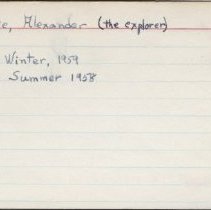 e, Alexander (the explorer)
Winter, 1959
Summer 1958